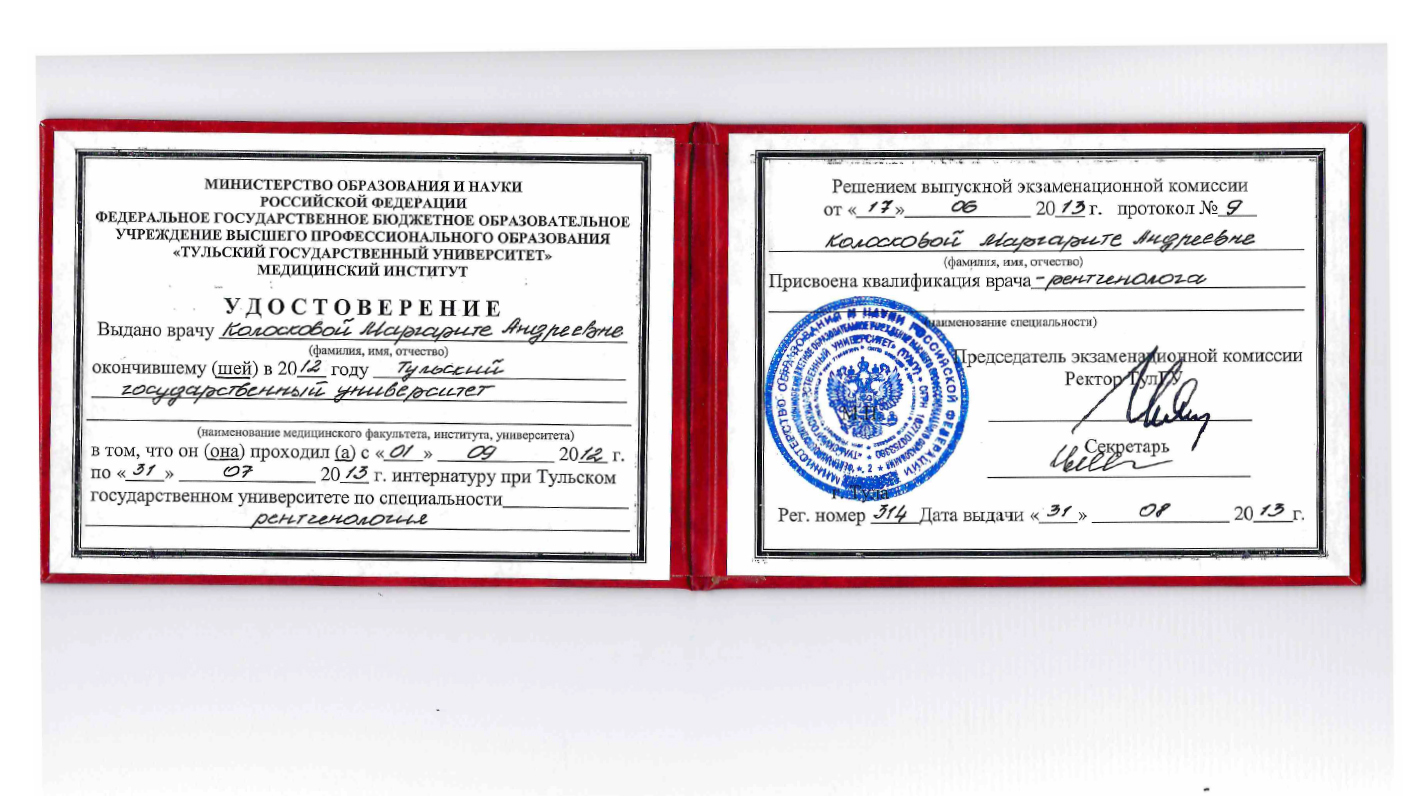 МИНИСТЕРСТВО ОБРАЗОВАНИЯ И НАУКИ
РОССИЙСКОЙ ФЕДЕРАЦИИ
ФЕДЕРАЛЬНОЕ ГОСУДАРСТВЕННОЕ БЮДЖЕТНОЕ ОБРАЗОВАТЕЛЬНОЕ
УЧРЕЖДЕНИЕ ВЫСШЕГО ПРОФЕССИОНАЛЬНОГО ОБРАЗОВАНИЯ
«ТУЛЬСКИЙ ГОСУДАРСТВЕННЫЙ УНИВЕРСИТЕТ»
МЕДИЦИНСКИЙ ИНСТИТУТ
УДОСТОВЕРЕНИЕ
Выдано врачу Колосковой Маргарите Андреевне
(фамилия, имя, отчество)
окончившему (шей) в 2012 году Тульский
государственный университет
(наименование медицинского факультета, института, университета)
в том, что он (она) проходил (а) с «01» 09 2012 г.
по «31» 07 2013 г. интернатуру при Тульском
государственном университете по специальности
рентгенология
Решением выпускной экзаменационной комиссии
от «17» 06 2013 г. протокол № 9
Колосковой Маргарите Андреевне
(фамилия, имя, отчество)
Присвоена квалификация врача-рентгенолога
(наименование специальности)
Председатель экзаменационной комиссии
Ректор ТулГУ
М.П.
Секретарь
г. Тула
Рег. номер 314 Дата выдачи «31» 08 2013г.